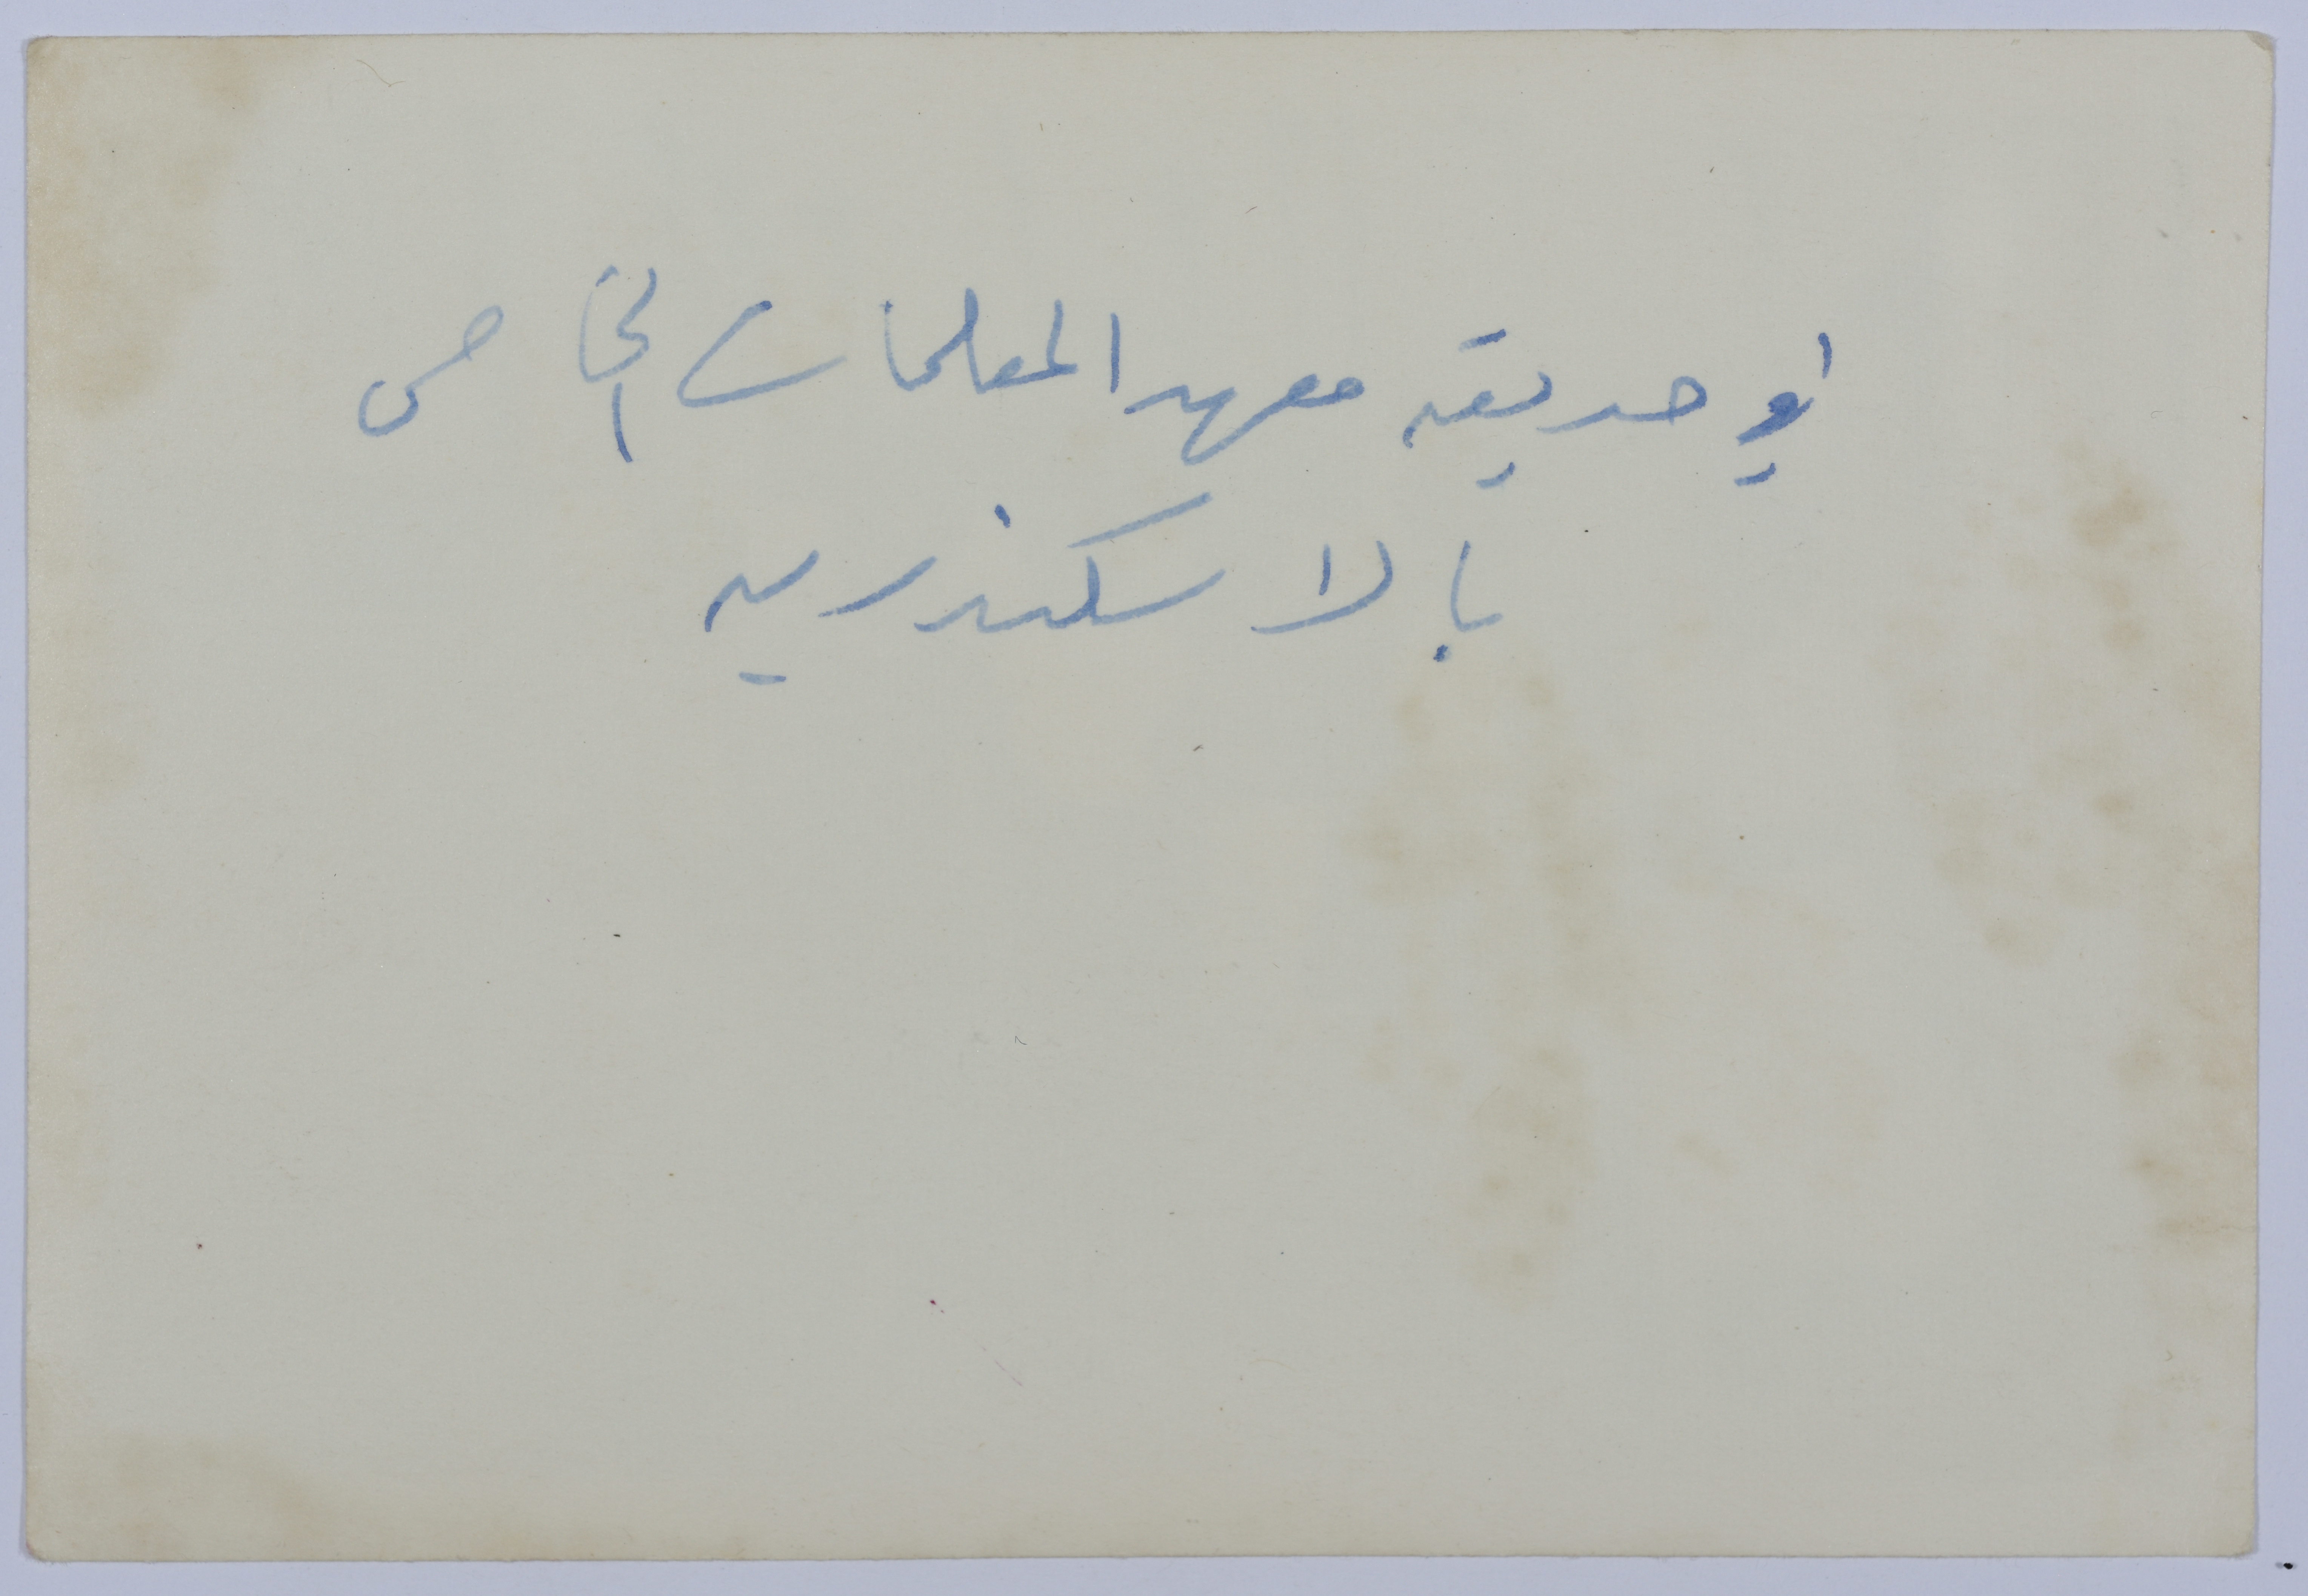 في حديقه معهد المعلمات الخاص
بالاسكندريه